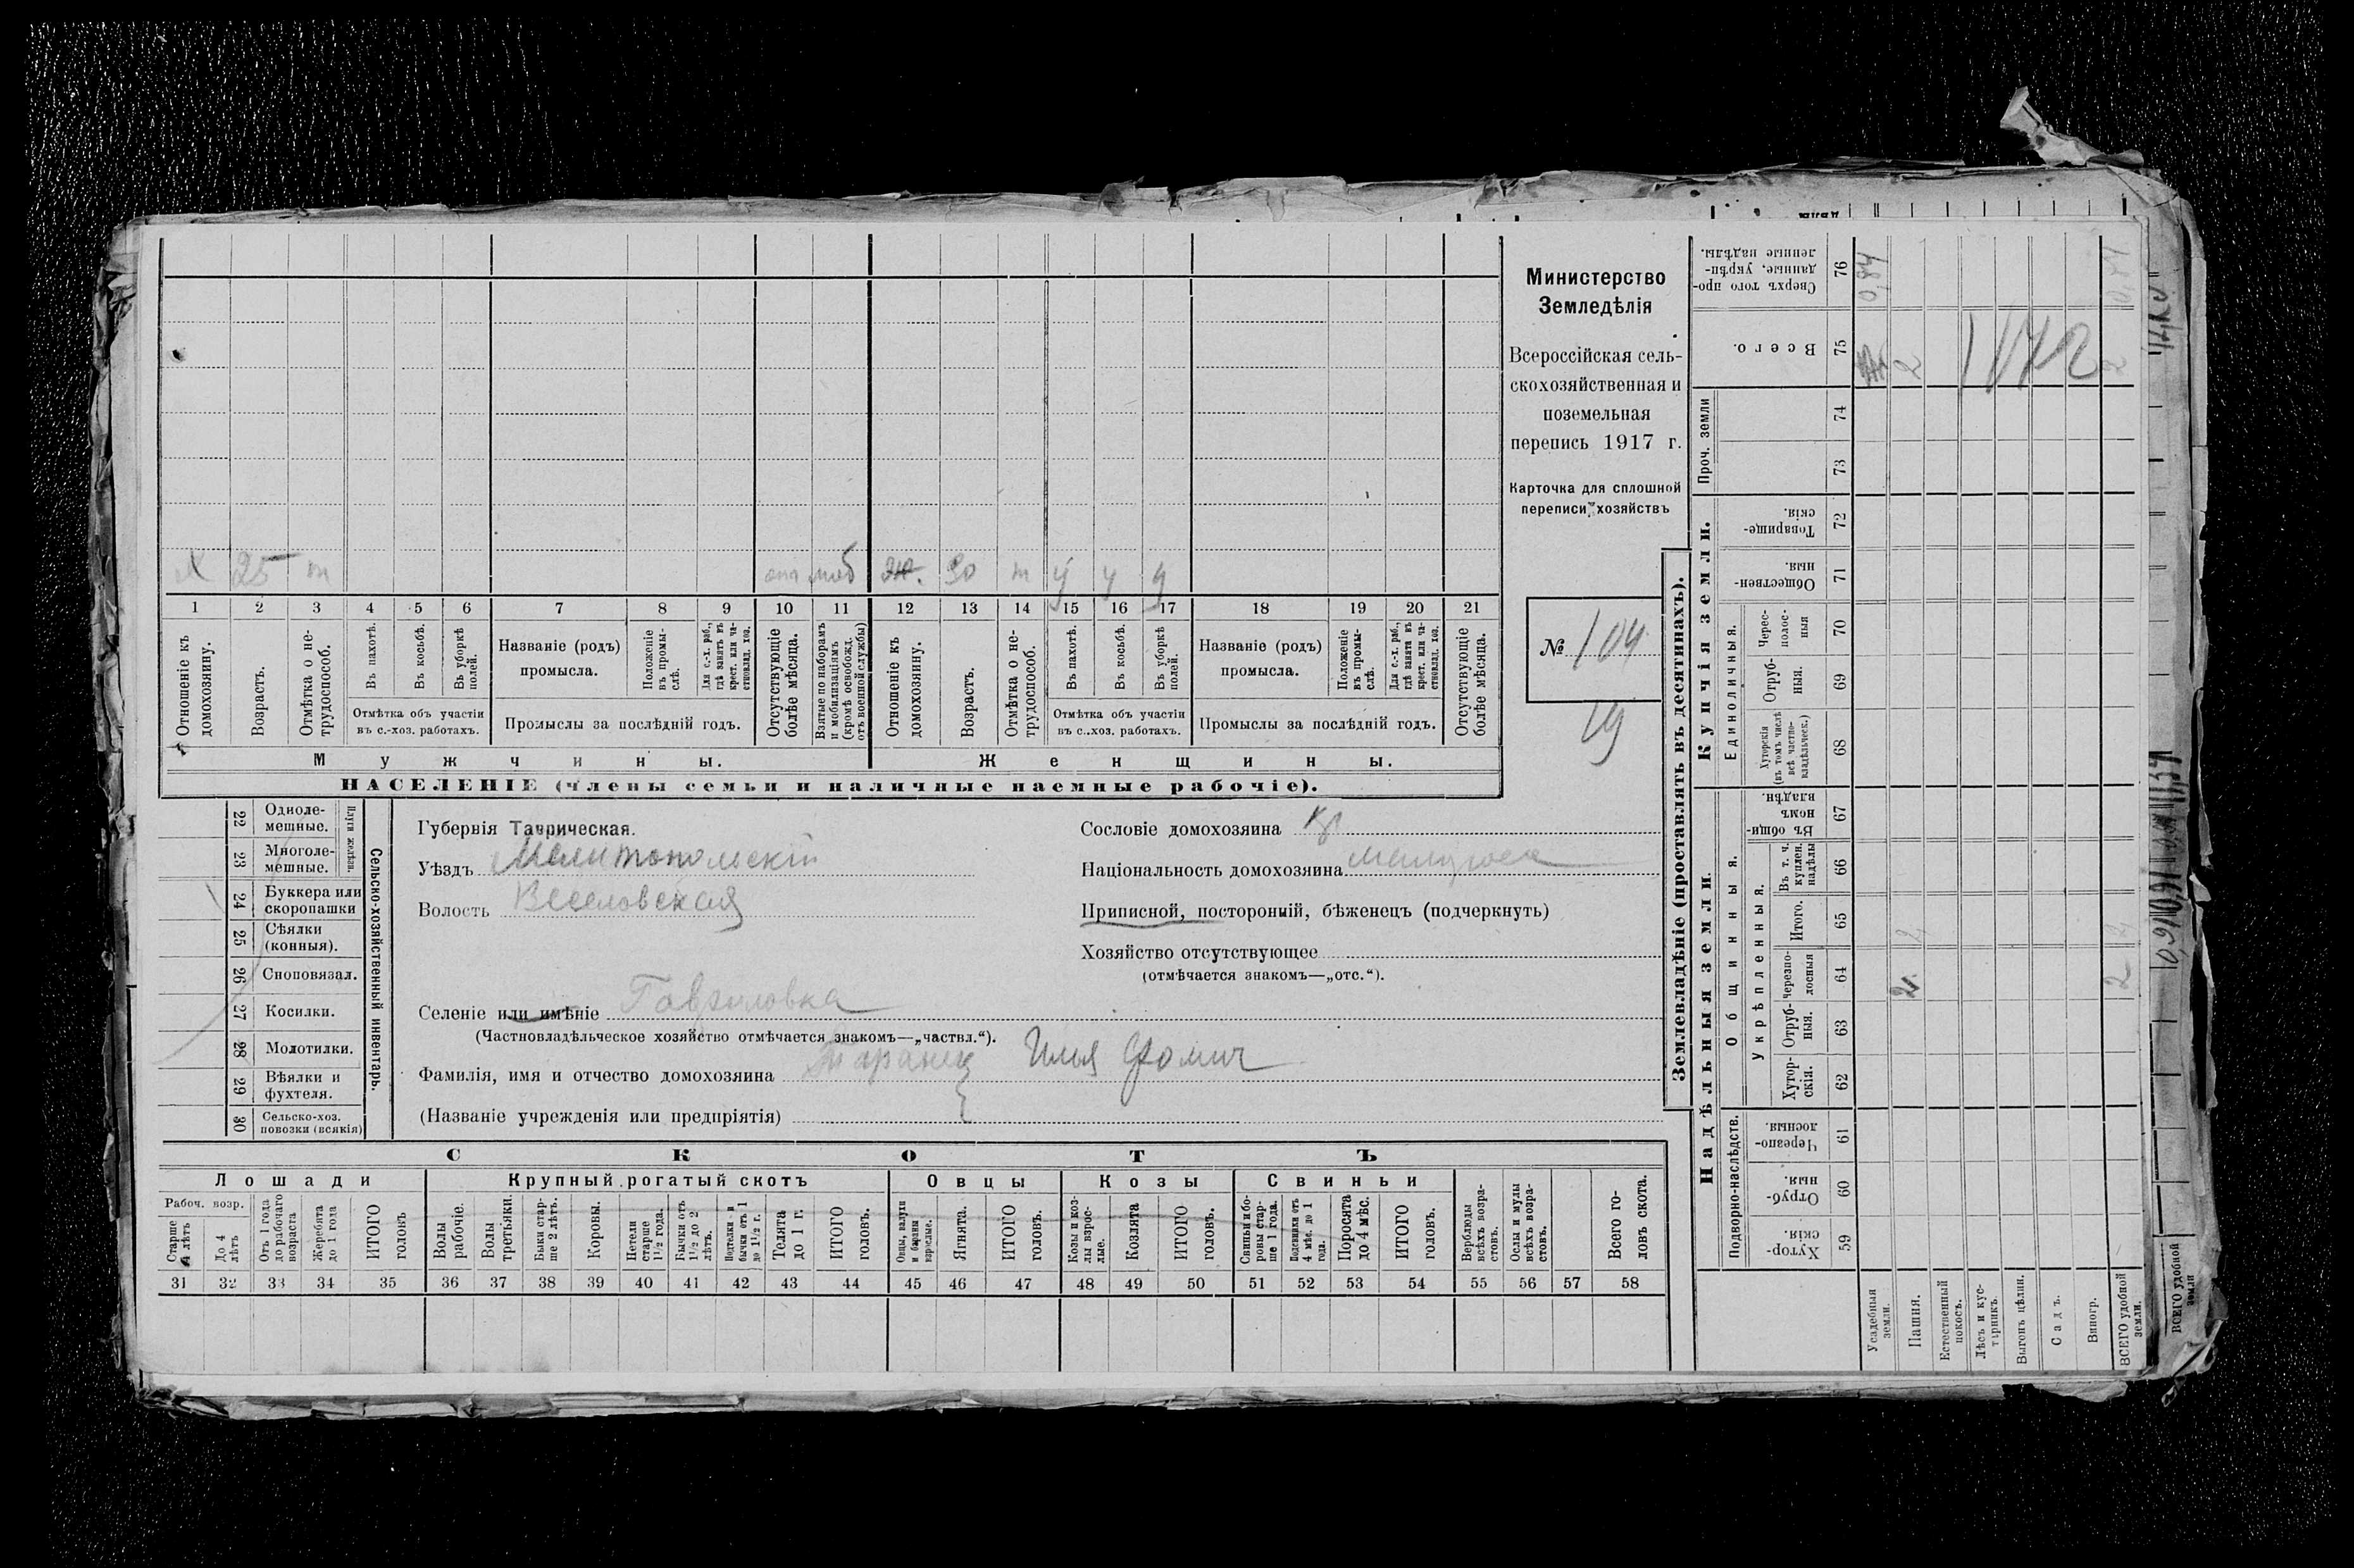 Министерство
Земледѣлія
Всероссійская сель-
скохозяйственная и
поземельная
перепись 1917 г.
Карточка для сплошной
переписи хозяйствъ
№ 104
Х 25 т отп моб Ж. 30 т ч ч ч
1 2 3 4 5 6 7 8 9 10 11 12 13 14 15 16 17 18 19 20 21
Отношеніе къ домохозяину.
Возрастъ.
Отмѣтка о не-трудоспособ.
Въ пахотѣ.
Въ косьбѣ.
Въ уборкѣ полей.
Отмѣтка объ участіи
въ с.-хоз. работахъ.
Названіе (родъ)
промысла.
Положеніе въ промы-слѣ.
Для с.-х. раб., гдѣ занятъ въ крест. или ча-стновлад. хоз.
Промыслы за послѣдній годъ.
Отсутствующіе болѣе мѣсяца.
Взятые по наборамъ и мобилизаціямъ (кромѣ освобожд. отъ военной службы)
Отношеніе къ домохозяину.
Возрастъ.
Отмѣтка о не-трудоспособ.
Въ пахотѣ.
Въ косьбѣ.
Въ уборкѣ полей.
Отмѣтка объ участіи
въ с.-хоз. работахъ.
Названіе (родъ)
промысла.
Положеніе въ промы-слѣ.
Для с.-х. раб., гдѣ занята въ крест. или ча-стновлад. хоз.
Промыслы за послѣдній годъ.
Отсутствующіе болѣе мѣсяца.
Мужчины. Женщины.
НАСЕЛЕНІЕ (члены семьи и наличные наемные рабочіе).
22 Одноле-мешные.
23 Многоле-мешные.
Плуги желѣзн.
24 Буккера или скоропашки
25 Сѣялки (конныя).
26 Сноповязал.
27 Косилки.
28 Молотилки.
29 Вѣялки и фухтеля.
30 Сельско-хоз. повозки (всякія)
Сельско-хозяйственный инвентарь.
Губернія Таврическая.
Уѣздъ Мелитопольскій
Волость Веселовская
Селеніе или имѣніе Гавриловка
(Частновладѣльческое хозяйство отмѣчается знакомъ—„частвл.“).
Фамилія, имя и отчество домохозяина Таранец Илья Фомич
(Названіе учрежденія или предпріятія)
Сословіе домохозяина кр
Національность домохозяина малоросс
Приписной, посторонній, бѣженецъ (подчеркнуть)
Хозяйство отсутствующее
(отмѣчается знакомъ—„отс.“).
СКОТЪ
Лошади Крупный рогатый скотъ Овцы Козы Свиньи
Рабоч. возр.
Старше 4 лѣтъ
До 4 лѣтъ
Отъ 1 года до рабочаго возраста
Жеребята до 1 года
ИТОГО головъ
Волы рабочіе.
Волы третьяки.
Быки стар-ше 2 лѣтъ.
Коровы.
Нетели старше 1½ года.
Бычки отъ 1½ до 2 лѣтъ.
Подтелки и бычки отъ 1 до 1½ г.
Телята до 1 г.
ИТОГО головъ.
Овцы, валухи и бараны взрослые.
Ягнята.
ИТОГО головъ.
Козы и коз-лы взрос-лые.
Козлята
ИТОГО головъ.
Свиньи и бо-ровы стар-ше 1 года.
Подсвинки отъ 4 мѣс. до 1 года.
Поросята до 4 мѣс.
ИТОГО головъ.
Верблюды всѣхъ возра-стовъ.
Ослы и мулы всѣхъ возра-стовъ.
Всего го-ловъ скота.
31 32 33 34 35 36 37 38 39 40 41 42 43 44 45 46 47 48 49 50 51 52 53 54 55 56 57 58
Землевладѣніе (проставлять въ десятинахъ).
Надѣльныя земли. Купчія земли.
Подворно-наслѣдств.
Общинныя.
Укрѣпленныя.
Единоличныя.
Проч. земли
59 Хутор-скія.
60 Отруб-ныя.
61 Черезпо-лосныя
62 Хутор-скія.
63 Отруб-ныя.
64 Черезпо-лосныя
65 Итого.
66 Въ т. ч. куплен. надѣлы
67 Въ общи-номъ владѣн.
68 Хуторскія (въ томъ числѣ всѣ частно-владѣльческ.)
69 Отруб-ныя.
70 Черес-полос-ныя
71 Обществен-ныя.
72 Товарище-скія.
73
74
75 Всего.
76 Сверхъ того про-данные, укрѣп-ленные надѣлы.
Усадебныя земли. 0,84
Пашня. 2 2 2
Естественный покосъ.
Лѣсъ и кус-тарникъ.
Выгонъ цѣлин.
Садъ.
Виногр.
ВСЕГО удобной земли. 2 2 2
ВСЕГО удобной земли